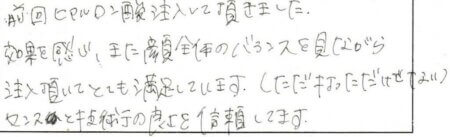 前回ヒアルロン酸注入して頂きました。
効果を感じ、また顔全体のバランスを見ながら
注入頂いてとても満足しています。(ただ
センスと技術の良さを信頼してます。